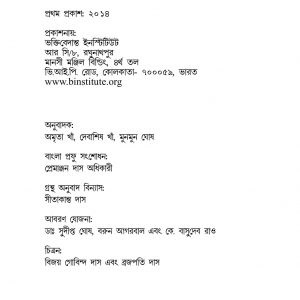 প্রথম প্রকাশ: ২০১৪
প্রকাশনায়:
ভক্তিবেদান্ত ইনস্টিটিউট
আর সি/৮, রঘুনাথপুর
মানসী মঞ্জিল বিল্ডিং, ৪র্থ তল
ভি.আই.পি. রোড, কোলকাতা- ৭০০০৫৯, ভারত
www.binstitute.org
অনুবাদক:
অমৃতা খাঁ, দেবাশিষ খাঁ, মুনমুন ঘোষ
বাংলা প্রুফ সংশোধন:
প্রেমাঞ্জন দাস অধিকারী
গ্রন্থ অনুবাদ বিন্যাস:
সীতাকান্ত দাস
আবরণ যোজনা:
ডাঃ সুদীপ্ত ঘোষ, বরুন আগরবাল এবং কে. বাসুদেব রাও
চিত্রন:
বিজয় গোবিন্দ দাস এবং ব্রজপতি দাস